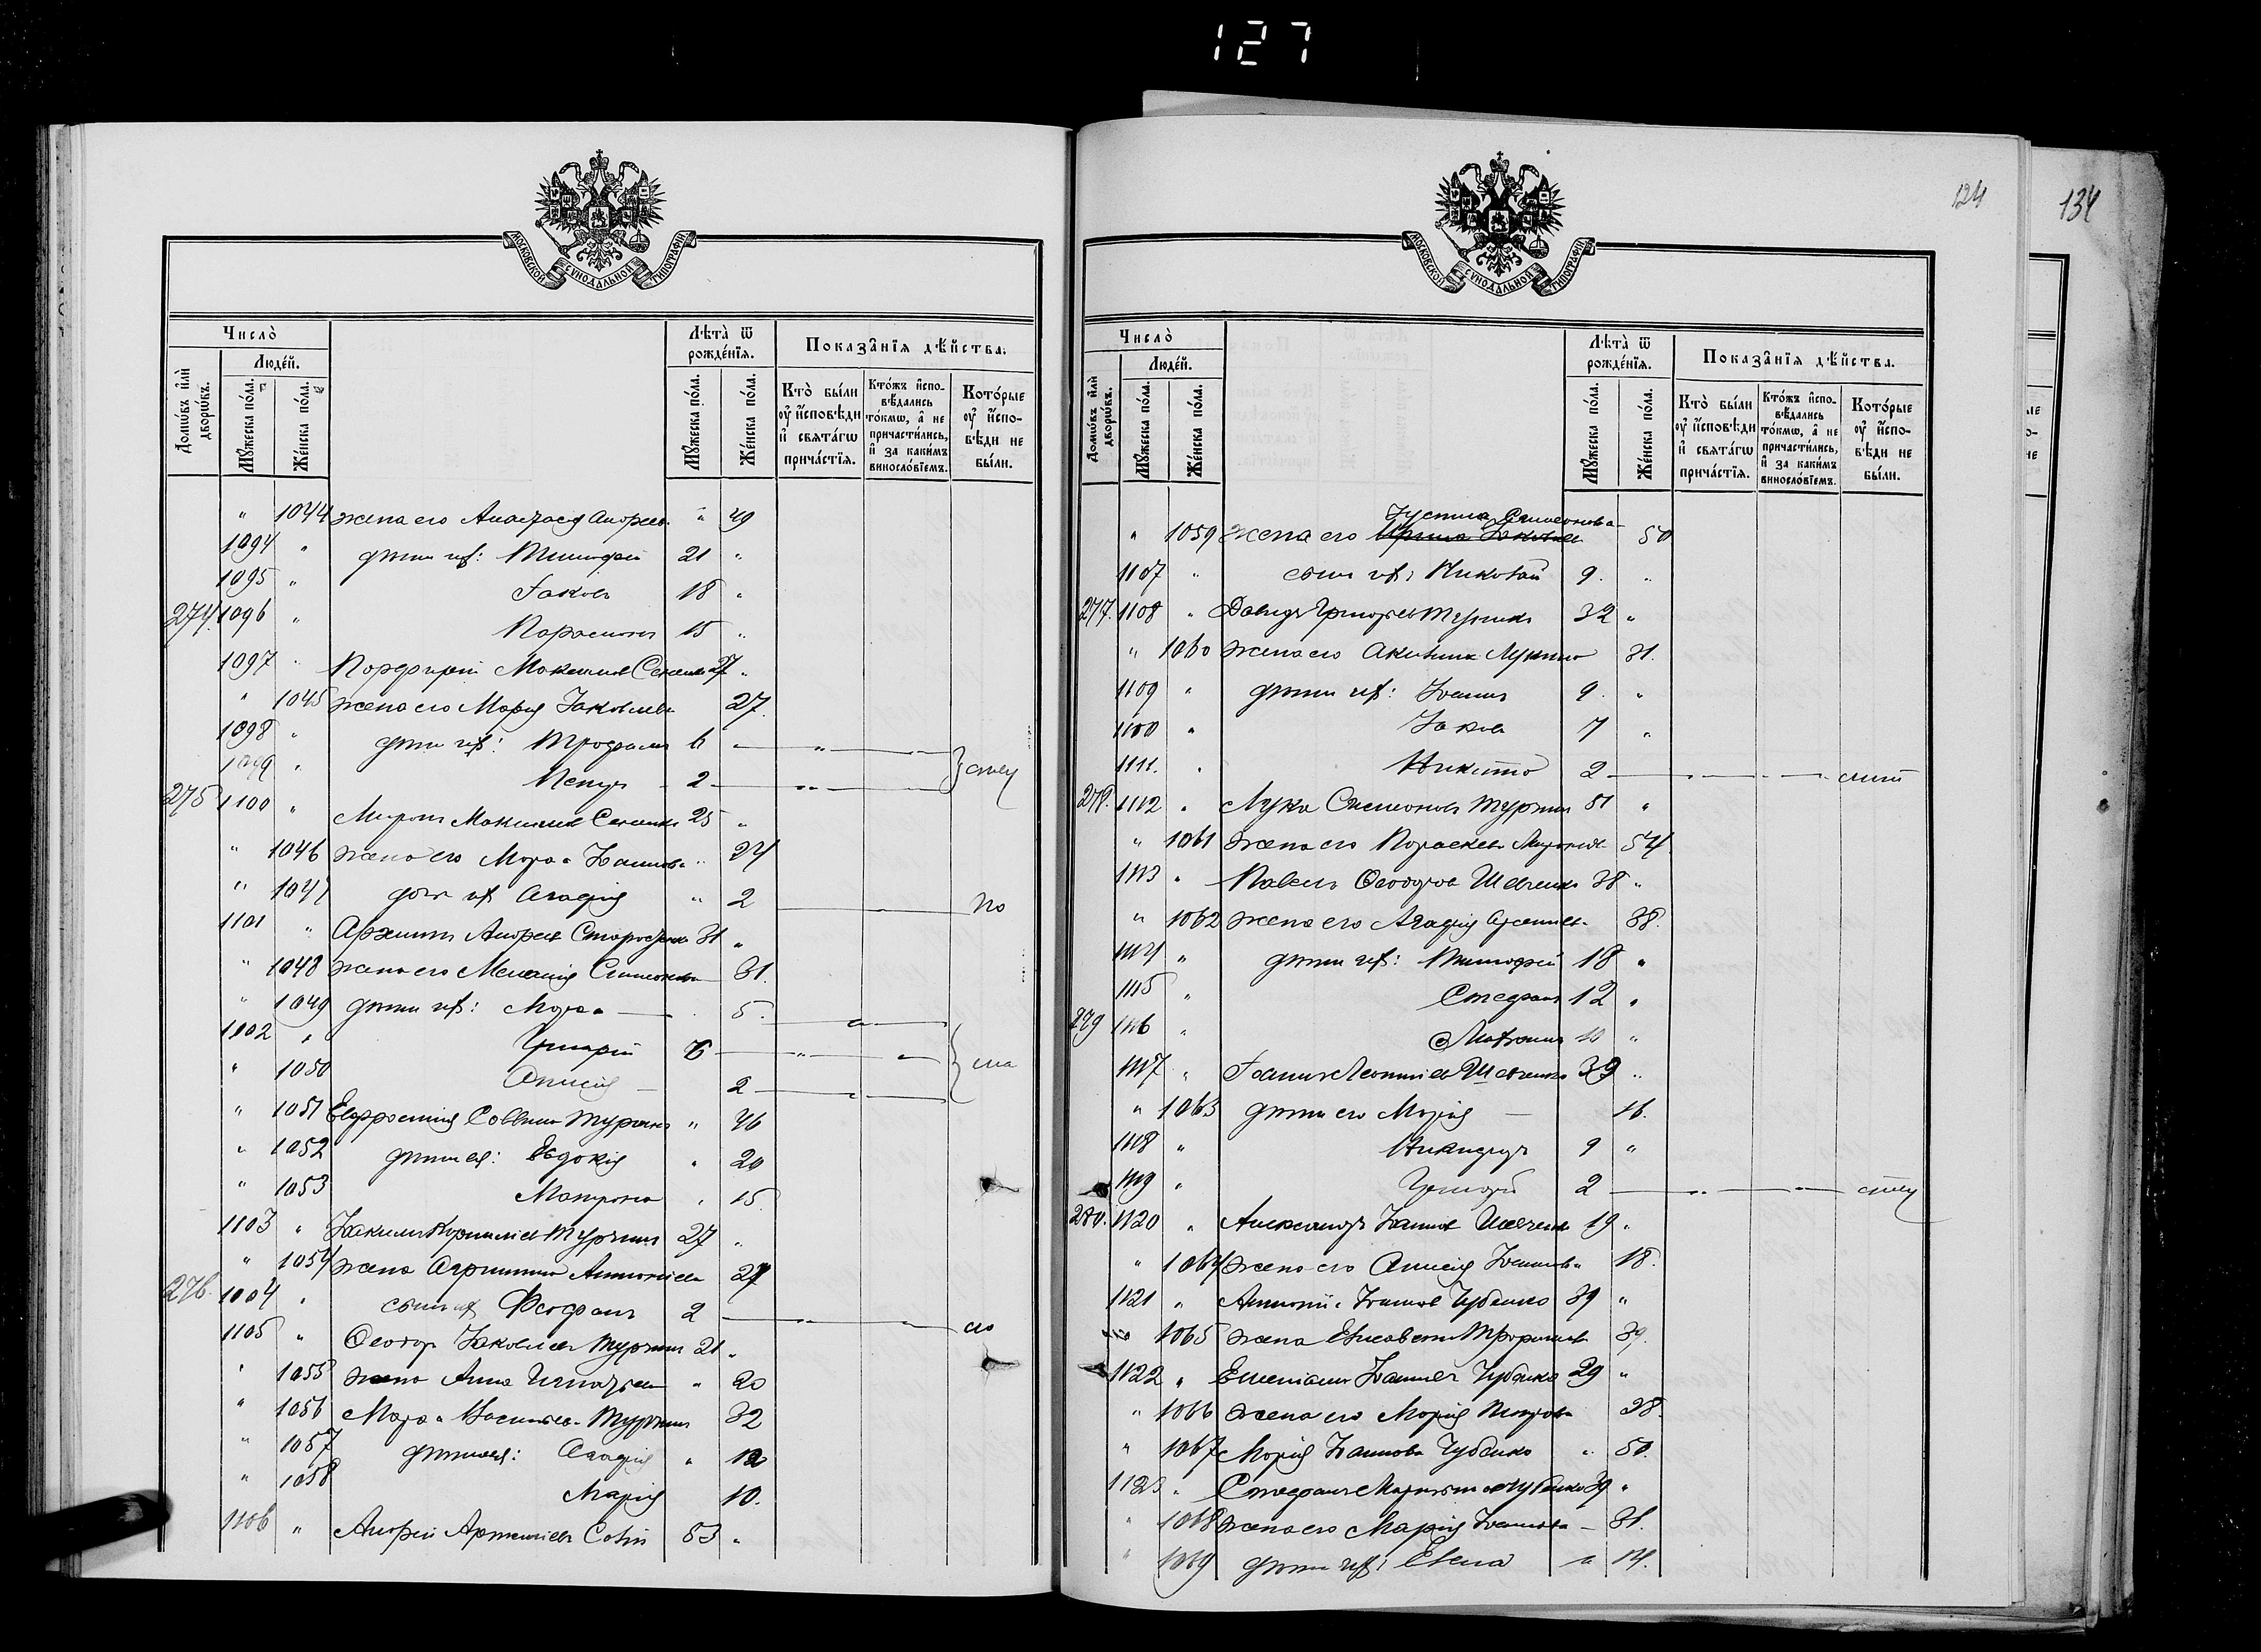 127
МОСКОВСКОЙ СѴНОДАЛЬНОЙ ТИПОГРАФІИ
Число̀
Домѡ́въ и҆лѝ дворѡ́въ.
Люде́й.
Мꙋ́жеска по́ла.
Же́нска по́ла.
Лѣта̀ ѿ рожде́нїѧ.
Мꙋ́жеска по́ла.
Же́нска по́ла.
Показа̑нїѧ дѣ́йства.
Кто̀ бы́ли ᲂу҆ и҆́сповѣди и҆ свѧта́гѡ прича́стїѧ.
Кто́жъ и҆спо-вѣ́дались то́кмѡ, а҆ не причасти́лись, и҆ за каки́мъ виносло́вїемъ.
Кото́рые ᲂу҆ и҆́спо-вѣди не бы́ли.
" 1044 жена его Анастасія Андреев. " 49
1094 " дѣти ихъ: Тимофей 21 "
1095 " Іаковъ 18 "
274. 1096 " 15 "
1097 " Порфирій Максимов 27 "
" 1045 жена его Марія Іаковлева 27.
1098 " дѣти ихъ: Трофимъ 6 "
1099 " Петръ 2
275 1100 " Миронъ Максимов 25 "
" 1046 жена его Марѳа Іоаннова " 24
" 1047 дочь ихъ Агафія " 2
1101 " Андреев 31 "
" 1048 жена его Меланія Симеонова 31.
" 1049 дѣти ихъ: Марѳа 5.
1102 " Григорій 6
" 1050 Анисія 2
" 1051 Евфросинія Саввина Турчин " 46
" 1052 дѣти ея: Евдокія " 20
" 1053 Матрона " 15.
1103 " Іоакимъ Корниліев Турчинъ 27 "
" 1054 жена Агриппина Антоніева 27
276. 1104 " сынъ ихъ Феофанъ 2
1105 " Ѳеодор Іаковлев Турчин 21 "
" 1055 жена Анна Игнатьева " 20
" 1056 Марѳа Васильев. Турчин 32
" 1057 дѣти ея: Агафія " 12
" 1058 Марія 10.
1106 " Андрей Артеміевъ 53 "
124
134
МОСКОВСКОЙ СѴНОДАЛЬНОЙ ТИПОГРАФІИ
Число̀
Домѡ́въ и҆лѝ дворѡ́въ.
Люде́й.
Мꙋ́жеска по́ла.
Же́нска по́ла.
Лѣта̀ ѿ рожде́нїѧ.
Мꙋ́жеска по́ла.
Же́нска по́ла.
Показа̑нїѧ дѣ́йства.
Кто̀ бы́ли ᲂу҆ и҆́сповѣди и҆ свѧта́гѡ прича́стїѧ.
Кто́жъ и҆спо-вѣ́дались то́кмѡ, а҆ не причасти́лись, и҆ за каки́мъ виносло́вїемъ.
Кото́рые ᲂу҆ и҆́спо-вѣди не бы́ли.
Іустина Симеонова
" 1059 жена его 50
1107 " сынъ ихъ Николай 9. "
277. 1108 " Давидъ Григорьев Турчинъ 32 "
" 1060 жена его Акилина 31.
1109 " дѣти ихъ: Іоаннъ 9. "
1100 " Іаковъ 7 "
1111. " Никита 2
278. 1112 " Лука Симеоновъ Турчин 51 "
" 1061 жена его Параскева Миронов. 54
1113 " Павелъ Ѳеодоров Шевченко 38 "
" 1062 жена его Агафія 38.
1114 " дѣти ихъ: Тимофей 18 "
1115 " Стефанъ 12 "
279 1116 " 10 "
1117 " Іоаннъ Леонтіев Шевченко 39 "
" 1063 дѣти его Марія 16.
1118 " Никандръ 9 "
1119 " Григорій 2
280. 1120 " Александръ Іоаннов Шевченко 19 "
" 1064 жена его Анисія Іоаннова 18.
1121 " Антоній Іоаннов Чубенко 39 "
1065 жена Елисавета Трофимов. 39.
1122 " Емеліанъ Іоаннов Чубенко 29 "
" 1066 жена его Марія Петрова 28.
" 1067 Марія Іоаннова Чубенко " 50.
1123 " Стефанъ Чубенко 39 "
" 1068 жена его Марія Іоаннова 31.
" 1069 дѣти ихъ: Елена " 14.